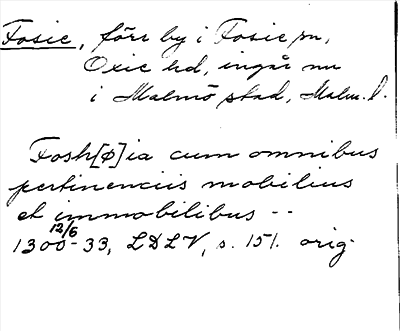 Fosie, förr by i Fosie sn,
Oxie hd, ingår nu
i Malmö stad, Malm. l.
Fosh[ø]ia cum omnibus
pertinenciis mobilius
et immobilibus --
1300 12/6 - 33, LDLV, s. 151. orig.